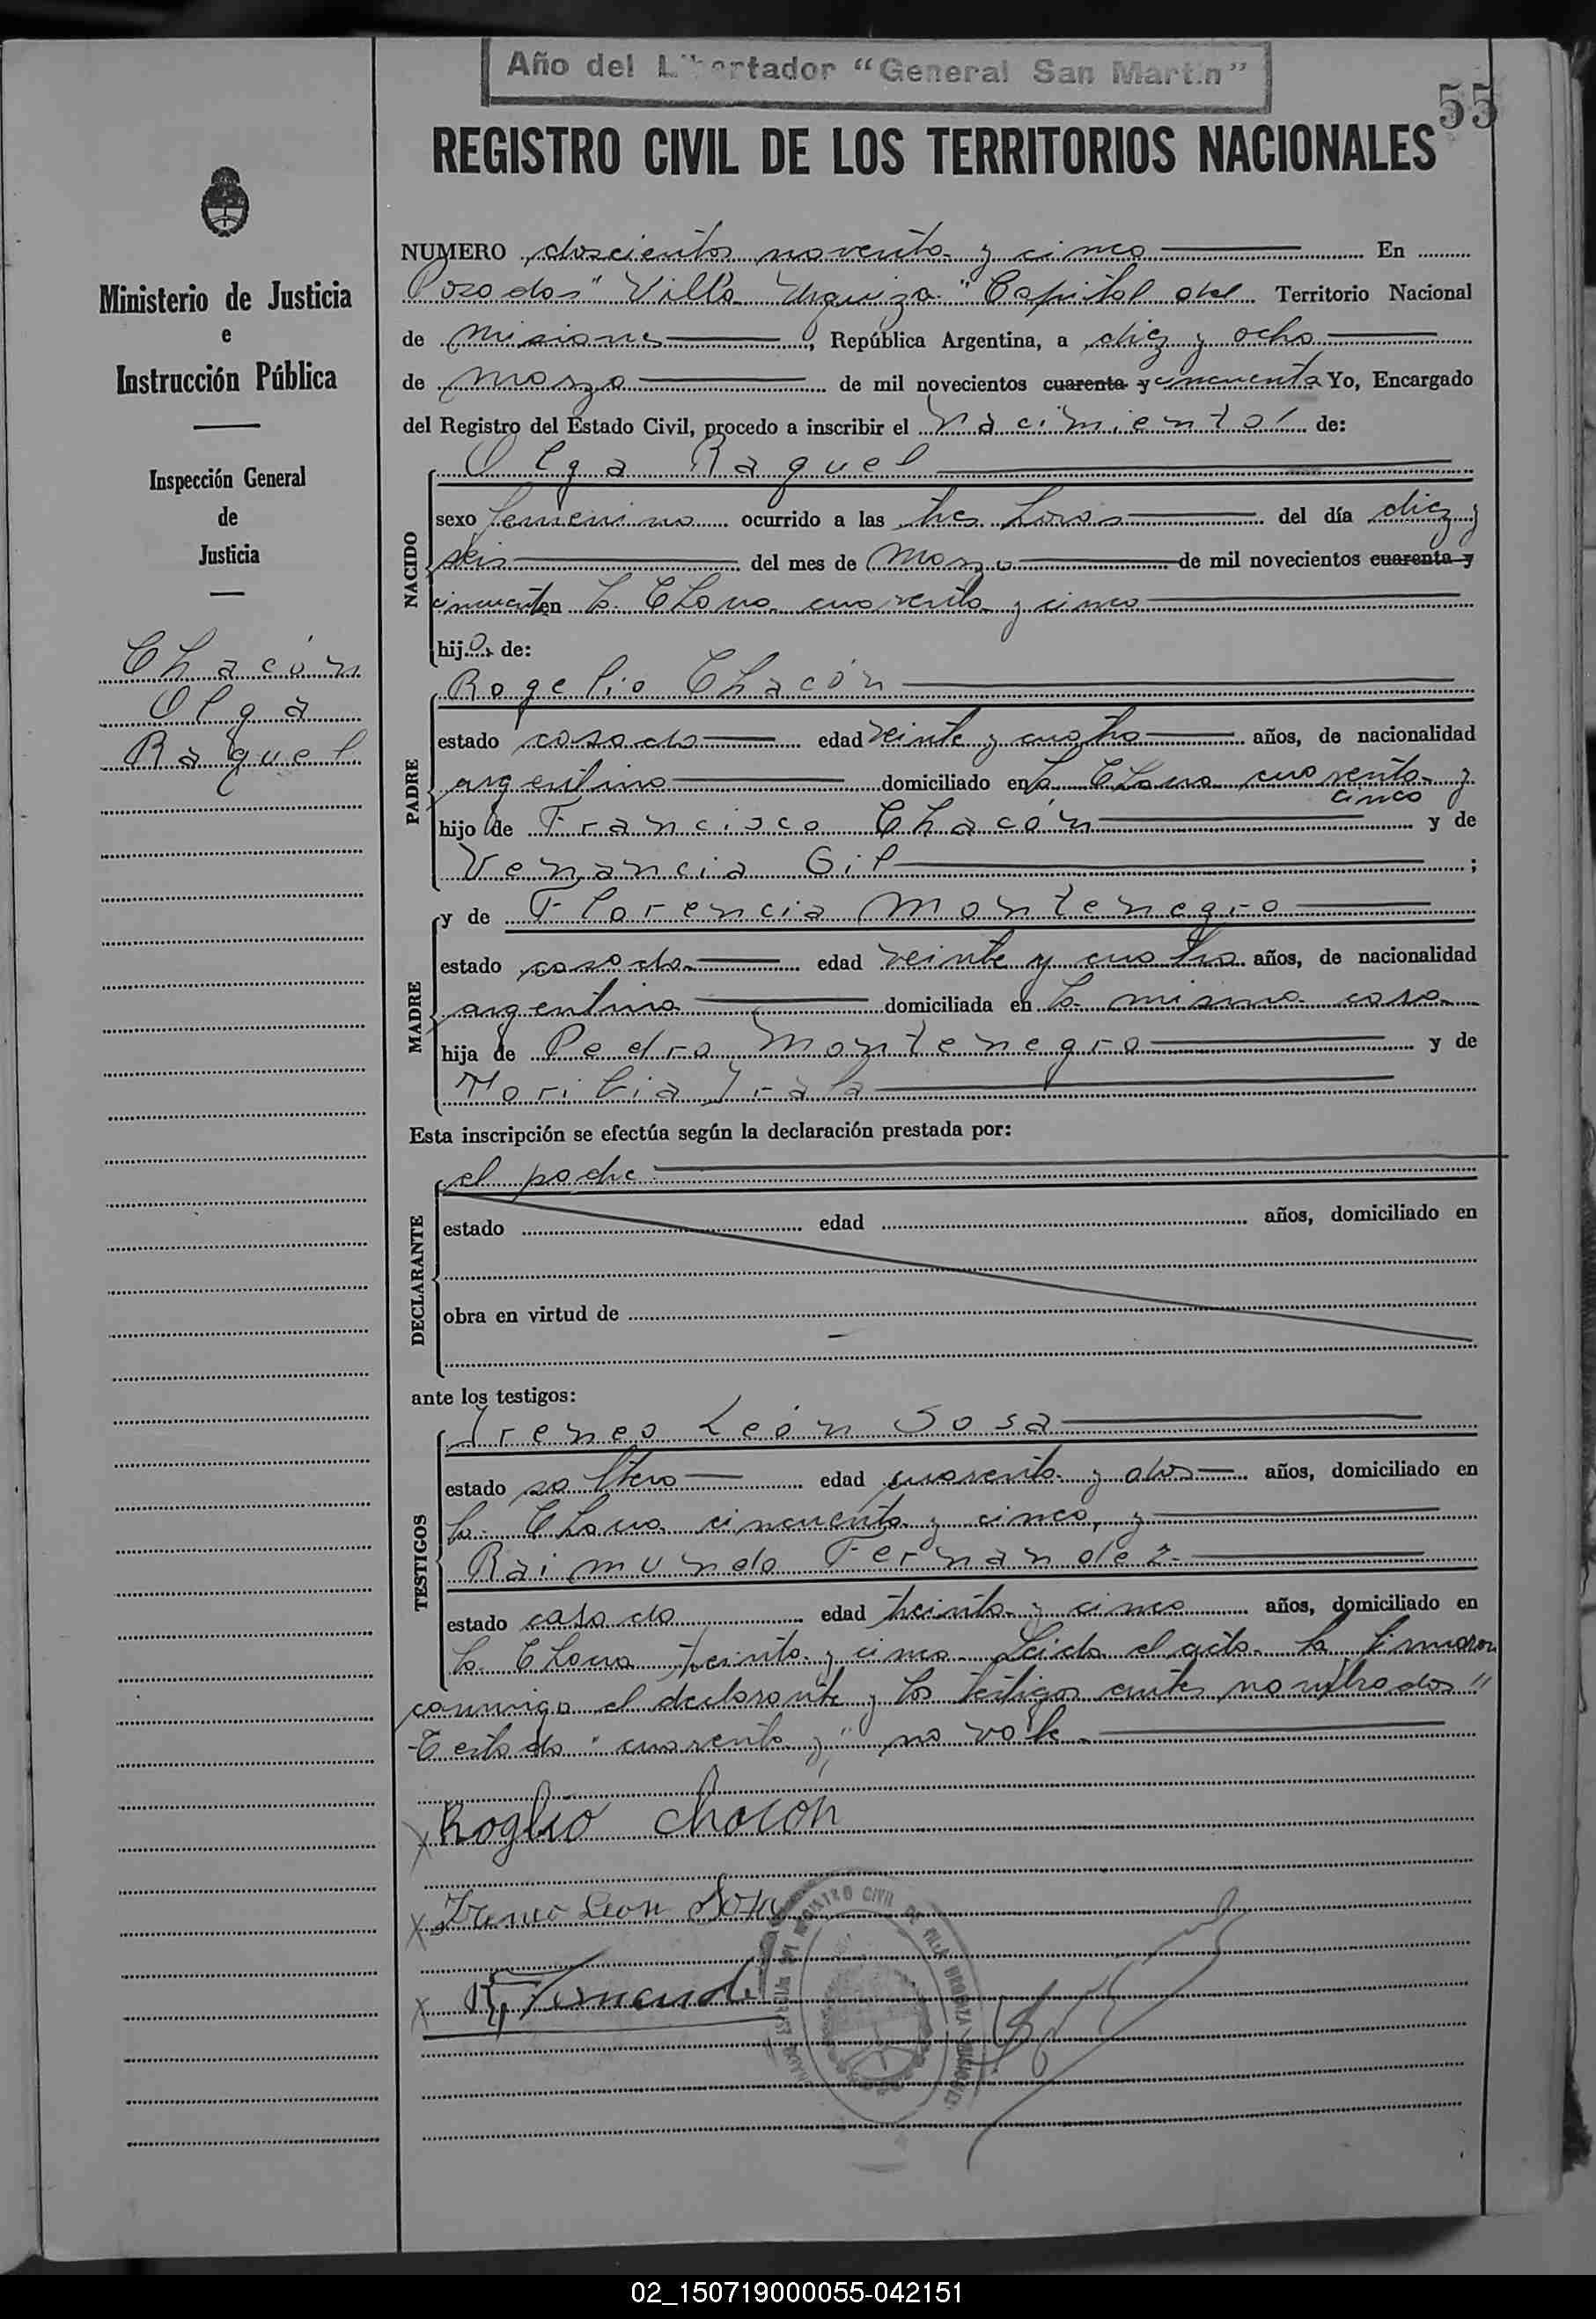 Año del Libertador "General San Martin"
55
REGISTRO CIVIL DE LOS TERRITORIOS NACIONALES
Ministerio de Justicia
e
Instrucción Pública
Inspección General
de
Justicia
Chacón
Olga
Raquel
NUMERO doscientos noventa y cinco En
Posadas "Villa Urquiza" Capital del Territorio Nacional
de Misiones, República Argentina, a diez y ocho
de Marzo de mil novecientos cuarenta y cincuenta Yo, Encargado
del Registro del Estado Civil, procedo a inscribir el Nacimiento de:
NACIDO
Olga Raquel
sexo femenino ocurrido a las tres horas del día diez y
seis del mes de Marzo de mil novecientos cuarenta y
cincuenta en la Chacra cuarenta y cinco
hija de:
PADRE
Rogelio Chacón
estado casado edad veinte y cuatro años, de nacionalidad
argentino domiciliado en la Chacra cuarenta y
cinco
hijo de Francisco Chacón y de
Venancia Gil;
MADRE
y de Florencia Montenegro
estado casada edad veinte y cuatro años, de nacionalidad
argentina domiciliada en la misma casa
hija de Pedro Montenegro y de
Irala
Esta inscripción se efectúa según la declaración prestada por:
DECLARANTE
el padre
estado edad años, domiciliado en
obra en virtud de
ante los testigos:
TESTIGOS
Ireneo León Sosa
estado soltero edad cuarenta y dos años, domiciliado en
la Chacra cincuenta y cinco, y
Raimundo Fernandez
estado casado edad treinta y cinco años, domiciliado en
la Chacra treinta y cinco. Leida el acta la firmaron
conmigo el declarante y los testigos antes nombrados"
Testado "cuarenta y" no vale.
Roglio Chacón
Ireneo Leon Sosa
R. Fernandez
REGISTRO CIVIL DE VILLA URQUIZA MISIONES
02_150719000055-042151